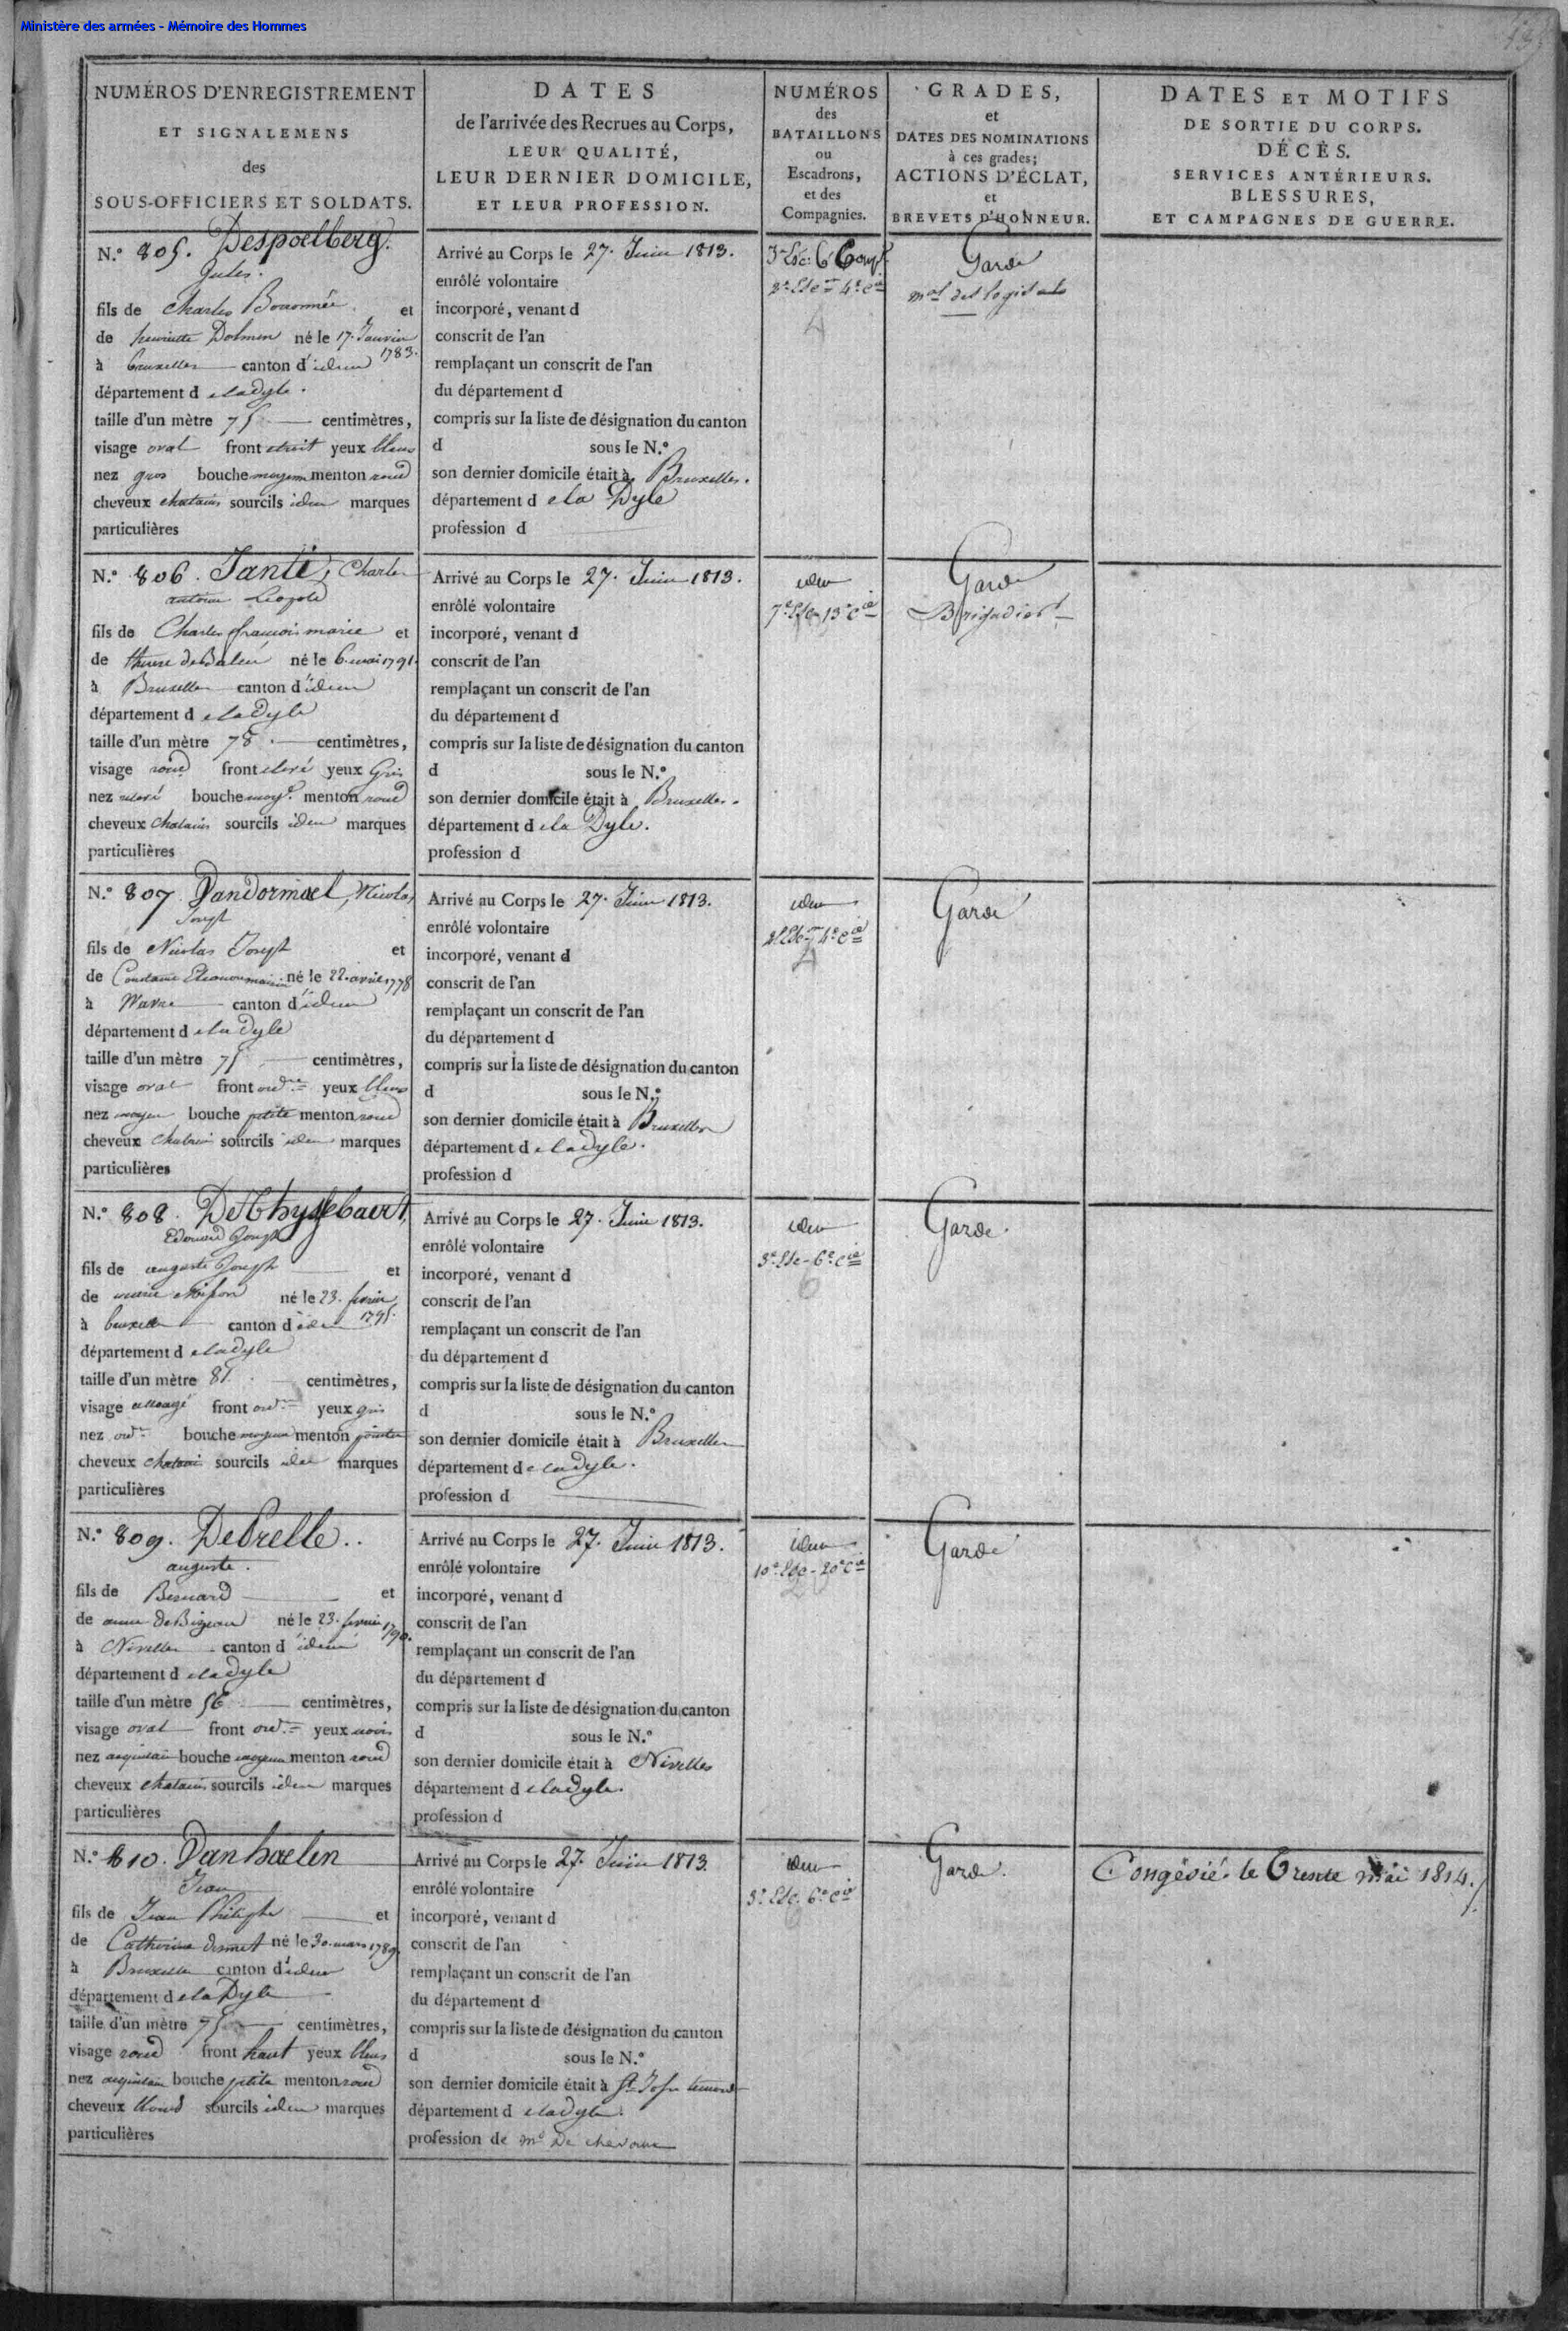 Ministère des armées - Mémoire des Hommes
NUMÉROS D'ENREGISTREMENT
ET SIGNALEMENS
des
SOUS-OFFICIERS ET SOLDATS.
DATES
de l'arrivée des Recrues au Corps,
LEUR QUALITÉ,
LEUR DERNIER DOMICILE,
ET LEUR PROFESSION.
NUMÉROS
des
BATAILLONS
ou
Escadrons,
et des
Compagnies.
GRADES,
et
DATES DES NOMINATIONS
à ces grades;
ACTIONS D'ÉCLAT,
et
BREVETS D'HONNEUR.
DATES ET MOTIFS
DE SORTIE DU CORPS.
DÉCÈS.
SERVICES ANTÉRIEURS.
BLESSURES,
ET CAMPAGNES DE GUERRE.
N.° 805. Despoelberg.
Jules.
fils de Charles Bonnomée et
de henriette Dolmen né le 17. Janvier
1783.
à bruxelles canton d'idem
département d ela dyle.
taille d'un mètre 75 centimètres,
visage oval front etroit yeux bleus
nez gros bouche moyenne menton rond
cheveux chatains sourcils idem marques
particulières
Arrivé au Corps le 27. Juin 1813.
enrôlé volontaire
incorporé, venant d
conscrit de l'an
remplaçant un conscrit de l'an
du département d
compris sur la liste de désignation du canton
d sous le N.°
son dernier domicile était à Bruxelles.
département d ela Dyle
profession d
3e Esc: 6 Comp.
2e Esc 4e cie
4
Garde
mal des logis
N.° 806. Santi, Charles
antoine Léopold
fils de Charles françois marie et
de né le 6. mai 1791.
à Bruxelles canton d'idem
département d ela dyle
taille d'un mètre 78. centimètres,
visage rond front elevé yeux Gris
nez bouche moy.e menton rond
cheveux chatains sourcils idem marques
particulières
Arrivé au Corps le 27. Juin 1813.
enrôlé volontaire
incorporé, venant d
conscrit de l'an
remplaçant un conscrit de l'an
du département d
compris sur la liste de désignation du canton
d sous le N.°
son dernier domicile était à Bruxelles.
département d ela Dyle.
profession d
idem
7e Esc 13e cie
Garde
Brigadier
N.° 807 Vandormael, Nicolas
Joseph
fils de Nicolas Joseph et
de Constance né le 22. avril 1778
à Wavre canton d'idem
département d ela dyle
taille d'un mètre 75 centimètres,
visage oval front ord.re yeux bleus
nez moyen bouche petite menton rond
cheveux chatain sourcils idem marques
particulières
Arrivé au Corps le 27. Juin 1813.
enrôlé volontaire
incorporé, venant d
conscrit de l'an
remplaçant un conscrit de l'an
du département d
compris sur la liste de désignation du canton
d sous le N.°
son dernier domicile était à Bruxelles
département d ela dyle.
profession d
idem
2e Esc 4e cie
4
Garde
N.° 808. DetThysebaert,
Edouard Joseph
fils de auguste Joseph et
de marie né le 23. fevrier
1795.
à bruxelles canton d'idem
département d ela dyle
taille d'un mètre 81. centimètres,
visage allongé front ord.re yeux gris
nez ord.re bouche moyenne menton pointu
cheveux chatain sourcils idem marques
particulières
Arrivé au Corps le 27. Juin 1813.
enrôlé volontaire
incorporé, venant d
conscrit de l'an
remplaçant un conscrit de l'an
du département d
compris sur la liste de désignation du canton
d sous le N.°
son dernier domicile était à Bruxelles
département d ela dyle.
profession d
idem
3e Esc - 6e cie
6
Garde.
N.° 809. DePrelle..
auguste.
fils de Bernard et
de anne de Bizeau né le 23. fevrier
1790.
à Nivelles canton d'idem
département d ela dyle
taille d'un mètre 56 centimètres,
visage oval front ord.re yeux noirs
nez aquilain bouche moyenne menton rond
cheveux chatains sourcils idem marques
particulières
Arrivé au Corps le 27. Juin 1813.
enrôlé volontaire
incorporé, venant d
conscrit de l'an
remplaçant un conscrit de l'an
du département d
compris sur la liste de désignation du canton
d sous le N.°
son dernier domicile était à Nivelles
département d ela dyle.
profession d
idem
10e Esc - 20e cie
20
Garde
N.° 810. Vanhaelen
Jean
fils de Jean Philippe et
de Catherine né le 30. mars 1789.
à Bruxelles canton d'idem
département d ela Dyle
taille d'un mètre 75 centimètres,
visage rond front haut yeux bleus
nez aquilain bouche petite menton rond
cheveux blond sourcils idem marques
particulières
Arrivé au Corps le 27. Juin 1813.
enrôlé volontaire
incorporé, venant d
conscrit de l'an
remplaçant un conscrit de l'an
du département d
compris sur la liste de désignation du canton
d sous le N.°
son dernier domicile était à St
département d ela dyle.
profession de md De chevaux
idem
3e Esc. 6e cie
6
Garde.
Congédié. le trente mai 1814.